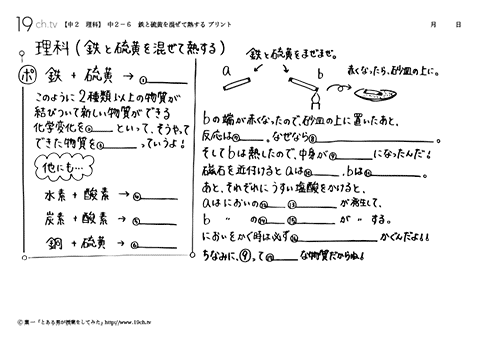 19ch.tv 【中2 理科】 中2－6 鉄と硫黄を混ぜて熱する プリント 月 日
理科(鉄と硫黄を混ぜて熱する)
ポ 鉄 + 硫黄 → ①
このように2種類以上の物質が
結びついて新しい物質ができる
化学変化を② といって、そうやって
できた物質を③ っていうよ!
他にも…
水素 + 酸素 → ④
炭素 + 酸素 → ⑤
銅 + 硫黄 → ⑥
鉄と硫黄をまぜまぜ。
a
b
赤くなったら、砂皿の上に。
bの端が赤くなったので、砂皿の上に置いたあと、
反応は⑦ 。なぜなら⑧
そしてbは熱したので、中身が⑨ になったんだ!
磁石を近付けるとaは⑩ 、bは⑪ 。
あと、それぞれにうすい塩酸をかけると、
aはにおいの⑫ ⑬ が発生して、
b 〃 の⑭ ⑮ が 〃 する。
においをかぐ時は必ず⑯ かぐんだよ!!
ちなみに、⑨って⑰ な物質だからね!
© 葉一「とある男が授業をしてみた」http://www.19ch.tv